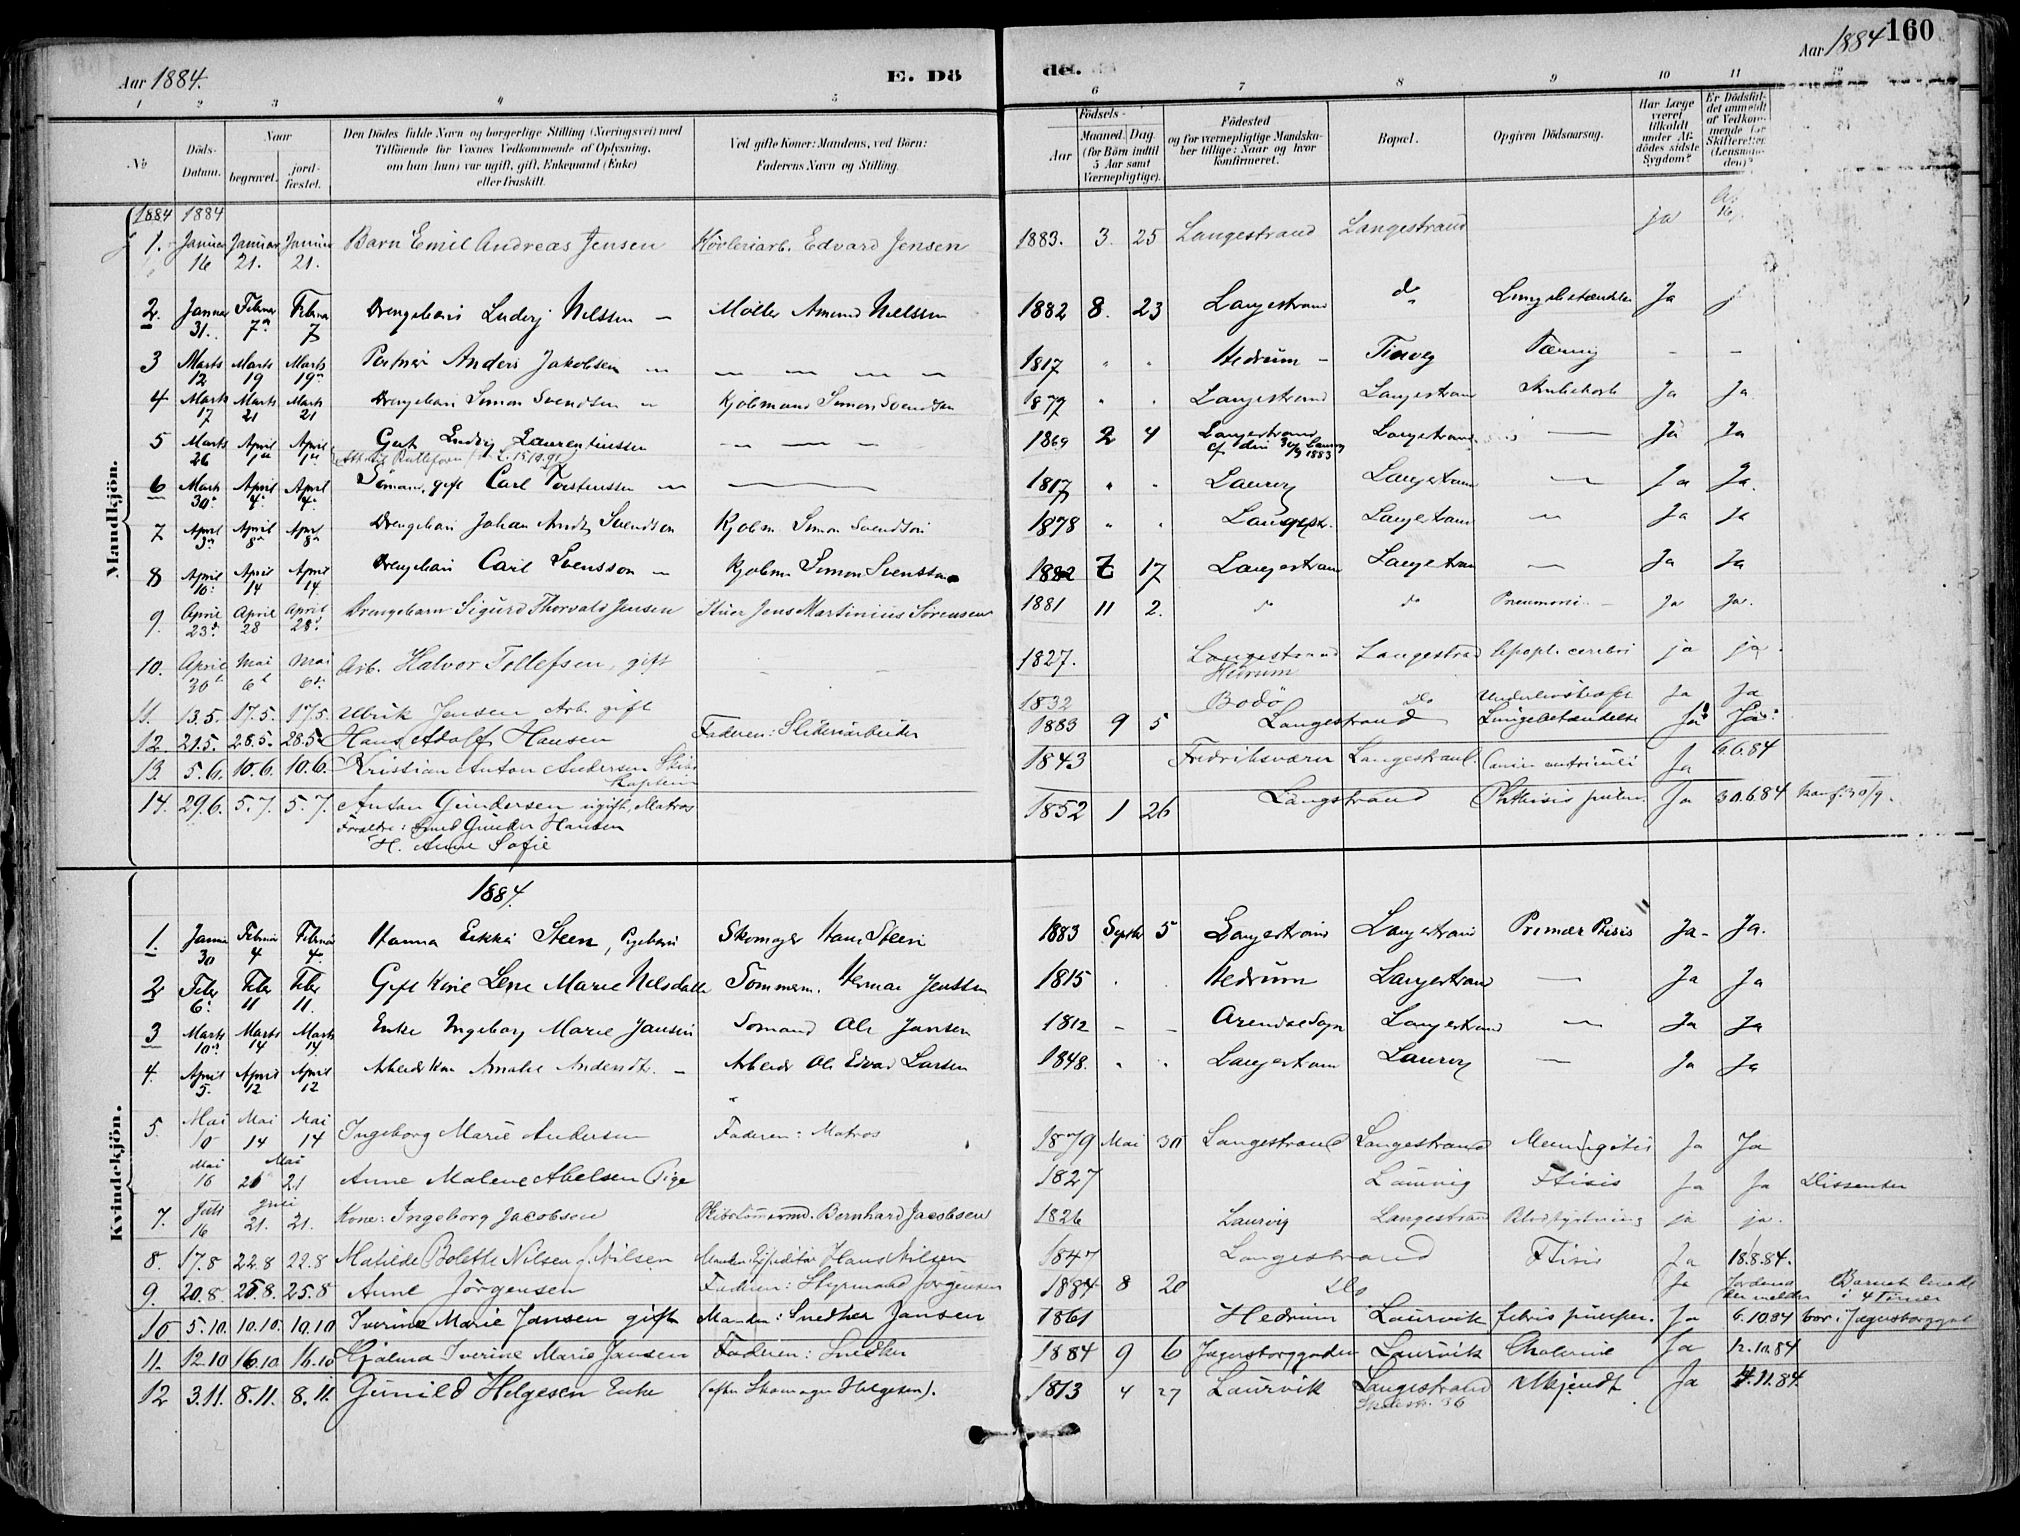 Aar 1884.
E. Dö
det.
Aar 1884
160
1 2 3 4 5 6 7 8 9 10 11 12
No
Döds-Datum.
Naar
begravet.
jord-fæstet.
Den Dödes fulde Navn og borgerlige Stilling (Næringsvei) med
Tilföiende for Voxnes Vedkommende af Oplysning,
om han (hun) var ugift, gift, Enkemand (Enke)
eller fraskilt.
Ved gifte Koner: Mandens, ved Börn:
Faderens Navn og Stilling.
Födsels-
Aar
Maaned. Dag.
(for Börn indtil
5 Aar samt
Værnepligtige).
Födested
og for værnepligtige Mandska-
ber tillige: Naar og hvor
konfirmeret.
Bopæl.
Opgiven Dödsaarsag.
Har Læge
været
tilkaldt
under Af-
dödes sidste
Sygdom?
Er Dödsfal-
det anmeldt
af Vedkom-
mende for
Skifteretten
(Lensman-
den)?
Mandkjön.
1884 1884
1. Januar 16 Januar 21. Januar 21. Barn Emil Andreas Jensen Edvard Jensen 1883. 3. 25 Langestrand Langestrand ja
2. Januar 31. Februar 7 Februar 7 Drengebarn Ludvig Nilssen Möller Amund Nilssen 1882 8. 23 Langestrand do Ja
3 Marts 12 Marts 19 Marts 19 Anders Jakobsen 1817 " " Hedrum Tæring
4 Marts 17 Marts 21 Marts 21 Drengebarn Simon Svendsen Simon Svendsen 1879 " " Langestrand Langestran Strubehoste Ja Ja
5 Marts 26 April 1 April 1 Gut Ludvig Laurentiussen 1869 2 4 Langestrand Langestrand Ja Ja
1883
6 Marts 30 April 4 April 4 Sömand, gift Carl Torstenssen 1817 " " Laurvig Langestran Ja Ja.
7 April 3 April 8 April 8 Drengebarn Johan Arndt Svendsen Simon Svendsen 1878 " " Langestr. Langestran Ja Ja
8 April 10 April 14 April 14. Drengebarn Carl Svensson Simon Svensson 1882 17 Langestran Langestran Ja Ja
9. April 23 April 28 April 28 Drengebarn Sigurd Thorvald Jensen Jens Martinius Sörensen 1881 11 2. do do Pneumoni Ja Ja.
10. April 30 Mai 6 Mai 6 Arb. Halvor Tollefsen, gift 1827. Langestrand
Hedrum Langestrand Apopl. cerebri ja ja.
11. 13.5. 17.5. 17.5. Ulrik Jensen Arb. gift 1832 Bodö Do Ja Ja
12. 21.5. 28.5. 28.5 Hans Adolf Hansen Faderen: Sliberiarbeider 1883 9 5 Langestrand Lungebetændelse Ja Ja
13. 5.6. 10.6. 10.6. Kristian Anton Andersen Skibs
Kaptein 1843 Fredriksværn Langestrand. Ja 6.6.84
14. 29.6. 5.7. 5.7. Anton Gundersen ugift, Matros 1852 1 26 Langstrand Phthisis pulm. Ja 30.6.84
Forældre: Smed Gunder Hansen
H. Anne Sofie
Kvindekjön.
1884.
1. Januar 30 Februar 4 Februar 4. Hanna Steen, Pigebarn Skomager Hans Steen 1883 Septbr 5 Langestrand Langestrand Primær Ja Ja.
2 Feber 6 Feber 11 Feber 11. Gift Kone Lene Marie Nilsdatter Sömmerm. Herman Jenssen 1815 Hedrum Langestrand Ja Ja
3 Marts 10 Marts 14 Marts 14 Enke Ingeborg Marie Jansen Sömand Ole Jansen 1812 Arendse Sogn Langestrand Ja Ja
4. April 5. April 12 April 12 Arbeider Kone Amalie Andersdtr. Arbeider Ole Edvar Larsen 1848. Langestran Laurvig Ja Ja
5. Mai 10 Mai 14 Mai 14 Ingeborg Marie Andersen Faderen: Matros 1879 Mai 30 Langestrand Langestrand Meningitis Ja Ja
Mai 16 Mai 21 21 Anne Malene Abelsen Pige 1827 Laurvig Ftisis Ja Ja Dissenter
7. Juli 16 21. 21. Kone: Ingeborg Jacobsen Skibstömmermd. Bernhard Jacobsen 1826 Laurvig Langestrand Blodstyrtning ja ja.
8. 17.8 22.8 22.8 Matilde Bolette Nilsen g. Nilsen Manden: Expeditör Hans Nilsen 1847 Langestrand Ftisis Ja 18.8.84.
9. 20.8. 25.8. 25.8 Anne Jörgensen Faderen: Styrmand Jörgensen 1884 8 20 Do Ja Jordemoder melder Barnet levede i 4 Timer
10 5.10. 10.10. 10.10 Iverine Marie Jansen gift Manden: Snedker Jansen 1861 Hedrum Laurvik febris puerper. Ja 6.10.84 bor i Jægersborggd
11. 12.10 16.10 16.10 Hjalma Iverine Marie Jansen Faderen: Snedker 1884 9 6 Jægersborggaden Laurvik Cholerine Ja 12.10.84
12 3.11. 8.11. 8.11. Gunild Helgesen Enke (efter Skomager Helgesen). 1813 4 27 Laurvik Langestrand Ja 4.11.84.